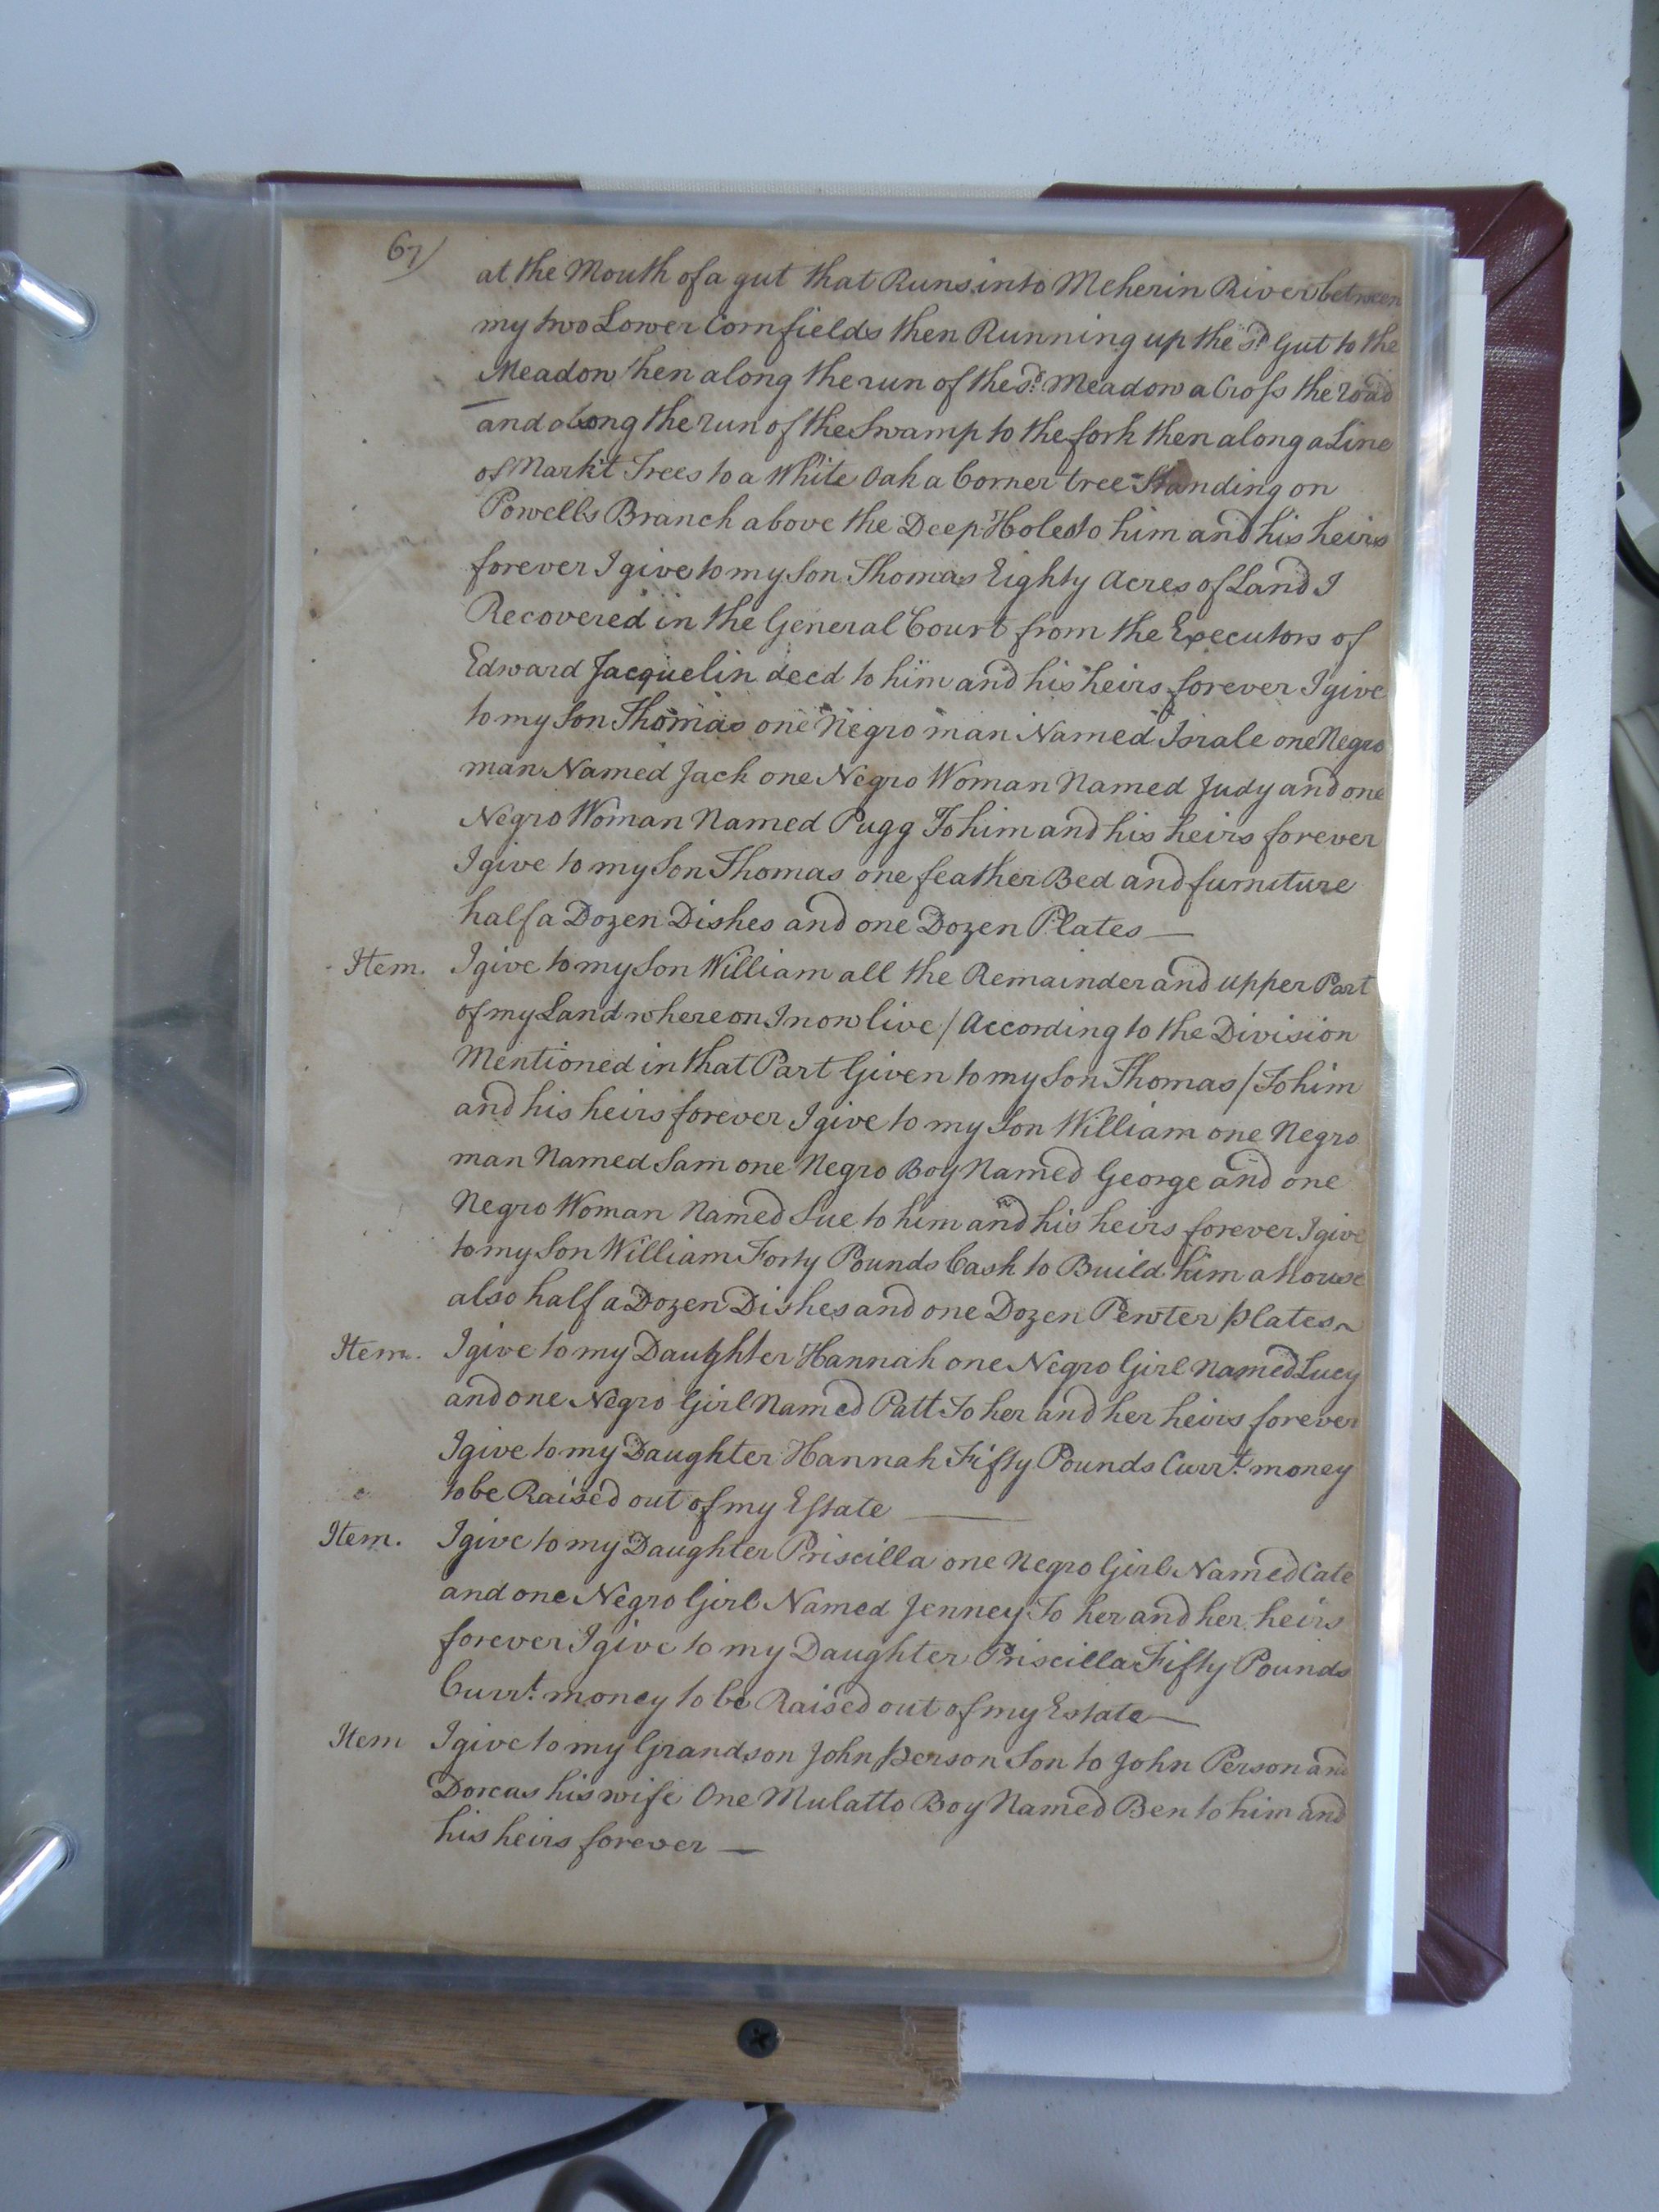 67/
at the Mouth of a gut that Runs into Meherin River between
my two Lower Cornfields then Running up the sd. Gut to the
Meadow then along the run of the sd. Meadow a Cross the road
and along the run of the Swamp to the fork then along a Line
of Markt Trees to a White Oak a Corner tree Standing on
Powells Branch above the Deep Holes to him and his heirs
forever I give to my Son Thomas Eighty Acres of Land I
Recovered in the General Court from the Executors of
Edward Jacquelin decd to him and his heirs forever I give
to my Son Thomas one Negro man Named Israle one Negro
man Named Jack one Negro Woman Named Judy and one
Negro Woman Named Pugg To him and his heirs forever
I give to my Son Thomas one feather Bed and furniture
half a Dozen Dishes and one Dozen Plates —
Item. I give to my Son William all the Remainder and upper Part
of my Land whereon I now live / According to the Division
Mentioned in that Part Given to my Son Thomas / To him
and his heirs forever I give to my Son William one Negro
man Named Sam one Negro Boy Named George and one
Negro Woman Named Sue to him and his heirs forever I give
to my Son William Forty Pounds Cash to Build him a house
also half a Dozen Dishes and one Dozen Pewter plates
Item. I give to my Daughter Hannah one Negro Girl Named Lucy
and one Negro Girl Named Patt To her and her heirs forever
I give to my Daughter Hannah Fifty Pounds Currt. money
to be Raised out of my Estate —
Item. I give to my Daughter Priscilla one Negro Girl Named Cate
and one Negro Girl Named Jenney To her and her heirs
forever I give to my Daughter Priscilla Fifty Pounds
Currt. money to be Raised out of my Estate —
Item I give to my Grandson John Person Son to John Person and
Dorcas his wife One Mulatto Boy Named Ben to him and
his heirs forever —